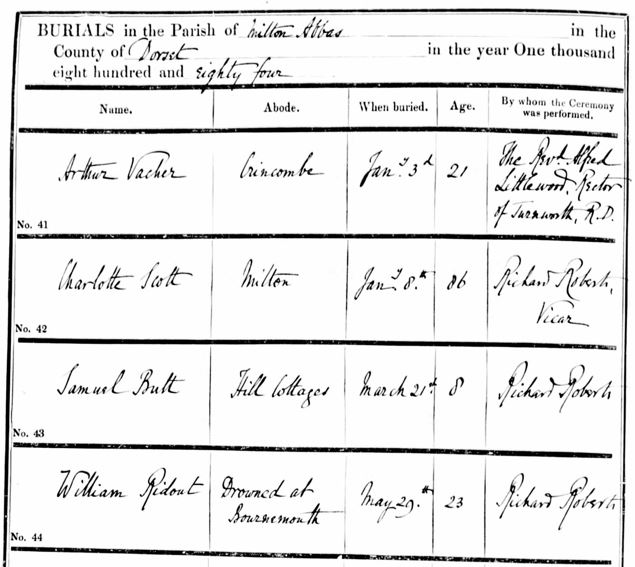 BURIALS in the Parish of Milton Abbas in the
County of Dorset in the year One thousand
eight hundred and eighty four
Name. Abode. When buried. Age. By whom the Ceremony was performed.
Arthur Vacher
No. 41
Jany. 3d
21
The Revd. Alfred
Littlewood, Rector
of Turnworth, R.D.
Charlotte Scott
No. 42
Milton
Jany. 8.th
86
Richard Roberts,
Vicar
Samuel Butt
No. 43
Hill Cottages
March 21st
8
Richard Roberts
William Ridout
No. 44
Drowned at
Bournemouth
May 29.th
23
Richard Roberts